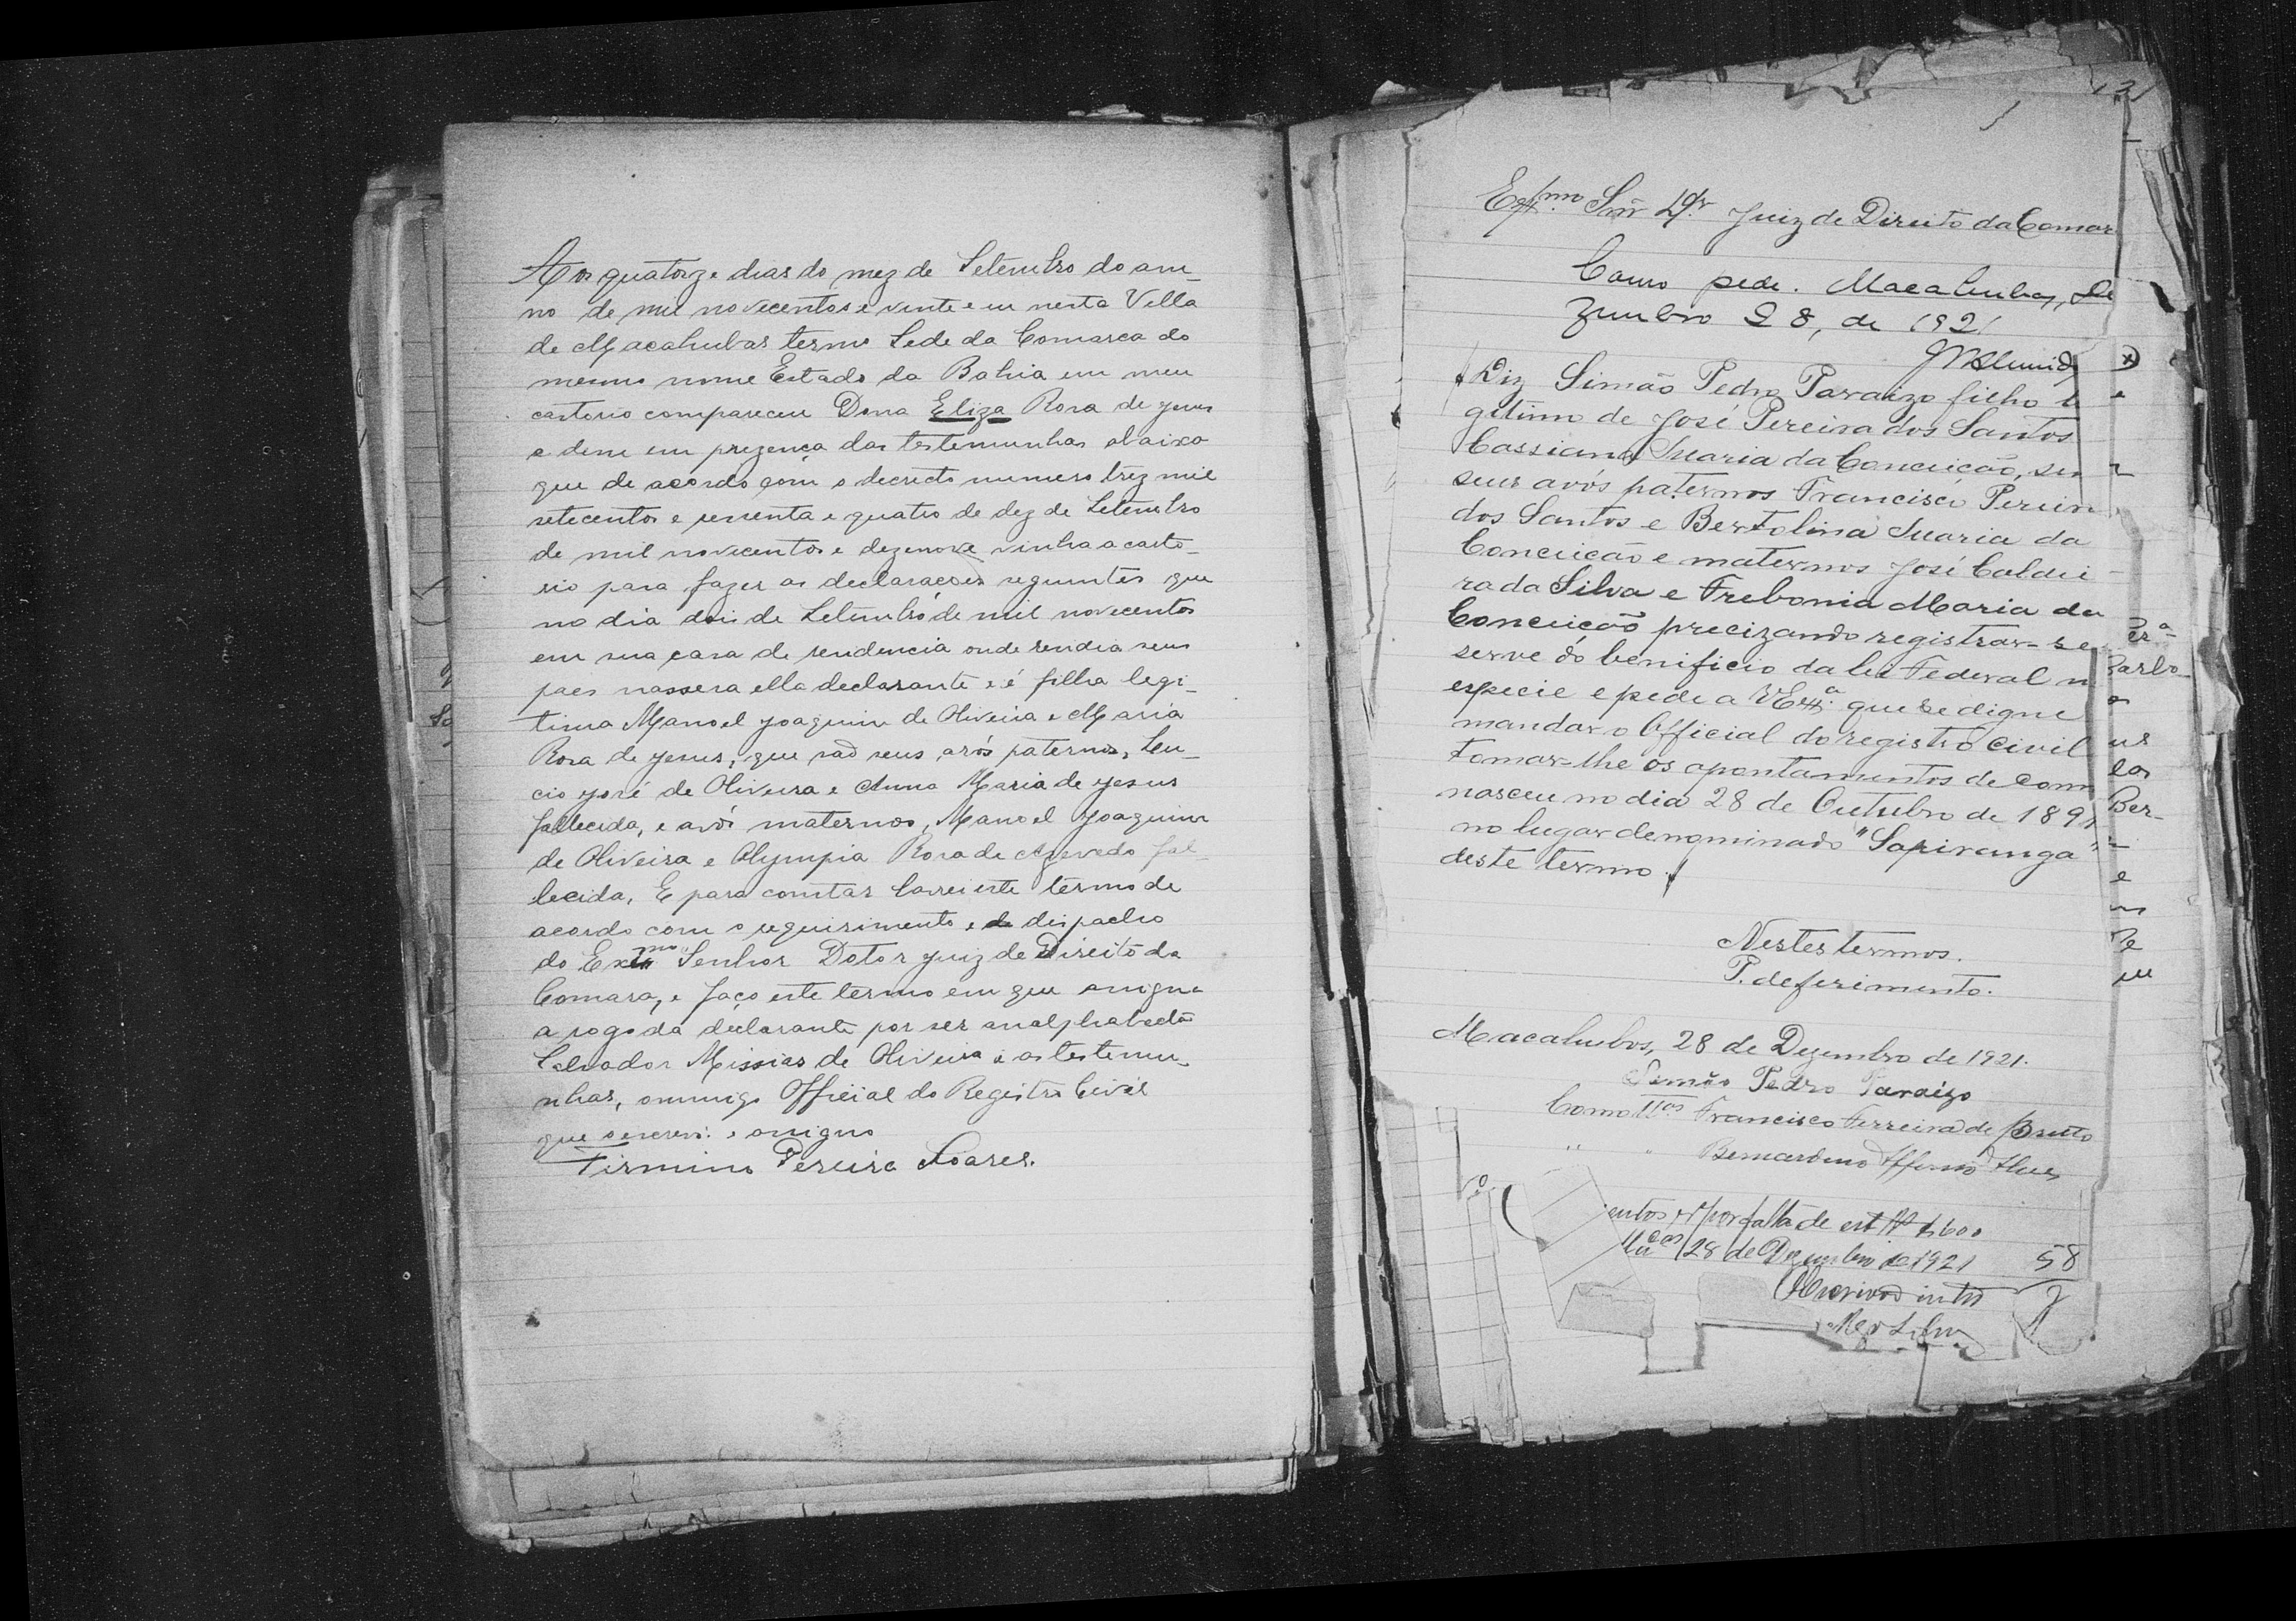 Aos quatorze dias do mez de Setembro do an-
no de mil novecentos e vinte e um nesta Villa
de Macahubas termo Sede da Comarca do
mesmo nome Estado da Bahia em meu
cartorio compareceu Dona Eliza Rosa de Jesus
e disse em prezença das testemunhas abaixo
que de acordo com o decreto numero trez mil
setecentos e sessenta e quatro de dez de Setembro
de mil novecentos e dezenove vinha a carto-
rio para fazer as declarações seguintes que
no dia dois de Setembro de mil novecentos
em sua casa de rendencia onde rendia seus
paes nassera ella declarante e é filha legi-
tima Manoel Joaquim de Oliveira e Maria
Rosa de Jesus, que são seus avós paternos, Leu-
cio José de Oliveira e Anna Maria de Jesus
fallecida, e avós maternos, Manoel Joaquim
de Oliveira e Olympia Rosa de Azevedo fal-
lecida, E para constar lavrei este termo de
acordo com o requirimento e de dispacho
do Exmo Senhor Dotor Juiz de Direito da
Comarca, e faço este termo em que asigna
a rogo da declarante por ser analphabeta
Salvador Missias de Oliveira e as testemu-
nhas, commigo Official do Registro Civil
que o escrevi e asigno
Firmino Pereira Soares.
13
Exmo Snr Dr Juiz de Direito da Comar
Como pede. Macahubas, De
zembro 28, de 1921
Diz Simão Pedro Paraizo filho le
gitimo de José Pereira dos Santos
Cassiana Maria da Conceição, sen
seus avós paternos Francisco Pereira
dos Santos e Bertolina Maria da
Conceição e maternos José Caldei-
ra da Silva e Trebonia Maria da
Conceição precizando registrar-se
serve do benificio da lei Federal n
especie e pede a V Exa que se digne
mandar o Official do registro Civil
tomar-lhe os apontamentos de com
nasceu no dia 28 de Outubro de 189
no lugar denominado "Sapiranga"
deste termo.
Nestes termos.
P. deferimento.
Macahubas, 28 de Dezembro de 1921.
Simão Pedro Paraizo
Como Ttas Francisco Ferreira de Brito
" " Bernardino Affonso Alves
entos rs por falta de est
28 de Dezembro de 1921 58
Era
Barbo-
us
las
Ber-
e